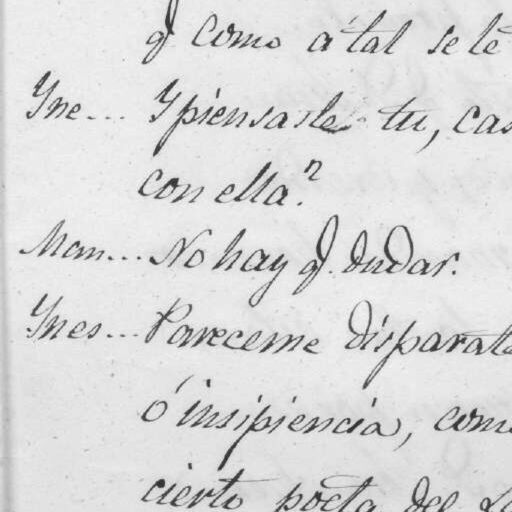 q como á tal se le
Yne... Y piensasle tu, cas
con ella?
Man... No hay q. dudar.
Ynes... Pareceme disparat
ó insipiencia, com
cierto poeta del